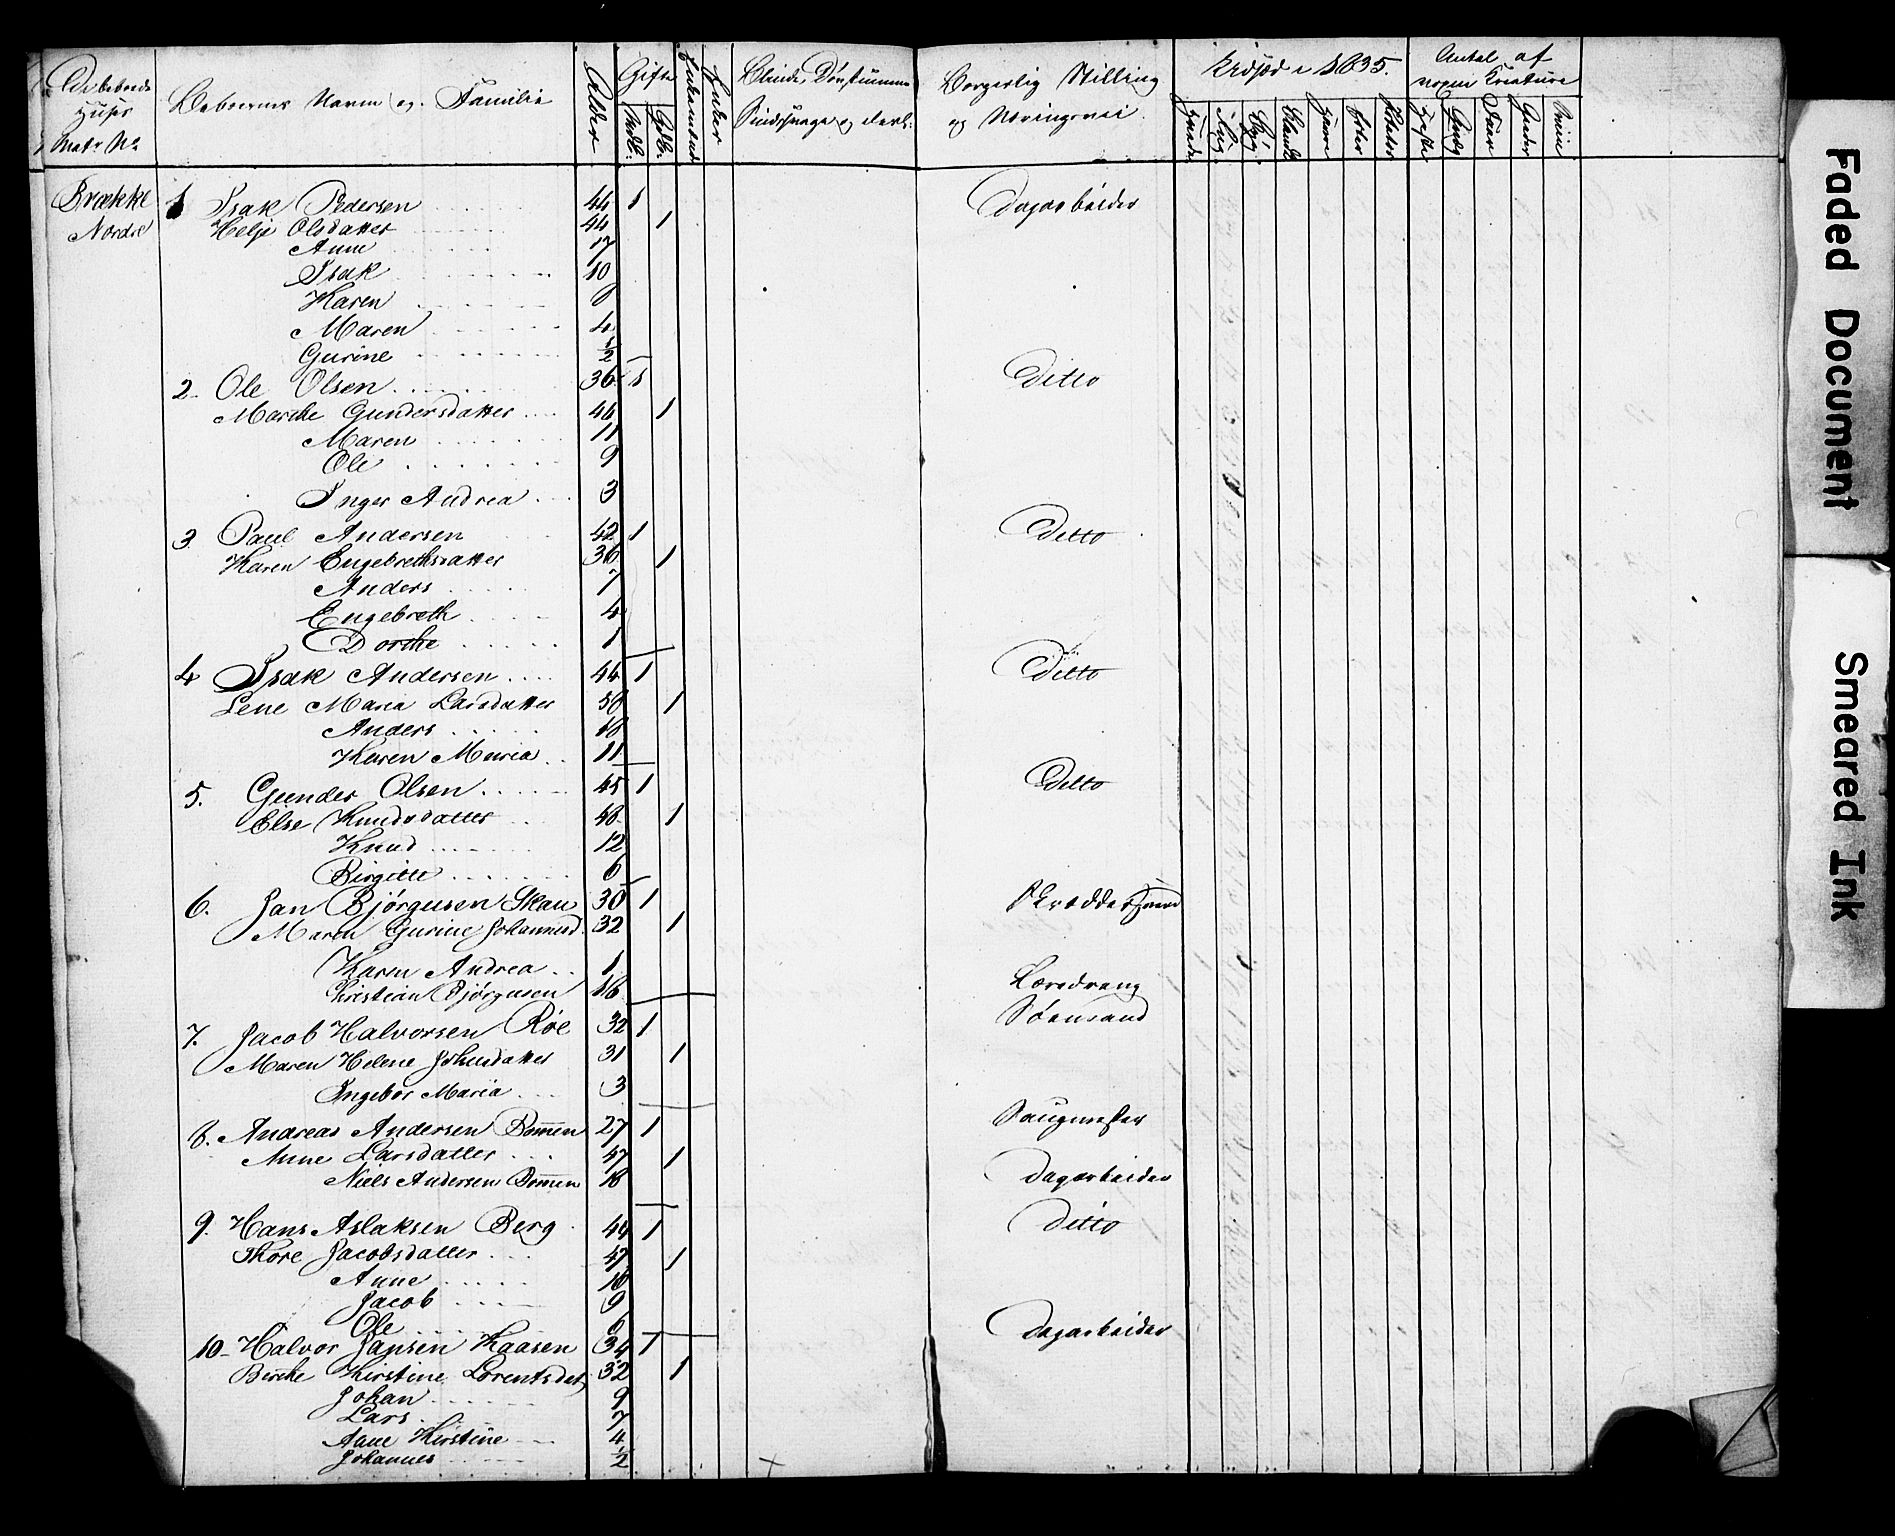 De beboede
Huses
Matr No
Beboernes Navn og Familie
Alder
Gifte
Blinde, Døvstumme
Sindssvage og
Borgerlig Stilling
og Næringsvei
Udsæd i 1835.
Antal af
Kreature
Hvede
Rug
Byg
Havre
Erter
Poteter
Heste
Svin
Brække
Nordre
1 Isak Pedersen 44 1 Dagarbeider
Helje Olsdatter 44 1
Anne 17
Isak 10
Karen 8
Maren 4
Gurine 1/2
2. Ole Olsen 36 1 Ditto
Marthe Gundersdatter 46 1
Maren 11
Ole 9
Inger Andrea 3
3 Paul Andersen 42 1 Ditto
Karen Engebrethsdatter 36 1
Anders 7
Engebreth 4
Dorthe 1
4 Isak Andersen 44 1 Ditto
Lene Maria Larsdatter 50 1
Anders 18
Karen Maria 11
5. Gunder Olsen 45 1 Ditto
Else Knudsdatter 48 1
Knud 12
Birgitte 6
6. Jan Bjørgusen Skau 30 1 Skræddersvend
Maren Gurine Johannesd. 32 1
Karen Andrea 1
Kristian Bjørgusen 16 Læredreng
7. Jacob Halvorsen Röe 32 1 Søemand
Maren Helene Johnsdatter 31 1
Ingebor Maria 3
8. Andreas Andersen Bommen 27 1 Saugmester
Anne Larsdatter 47 1
Niels Andersen Bommen 18 Dagarbeider
9. Hans Aslaksen Berg 44 1 Ditto
Thore Jacobsdatter 47 1
Anne 16
Jacob 9
Ole 6
10 Halvor Jansen Kaasen 34 1 Dagarbeider
Berthe Kirstine Lorentsdat. 32 1
Johan 9
Lars 7
Anne Kirstine 4
Johannes 1/2
Faded Document
Smeared Ink